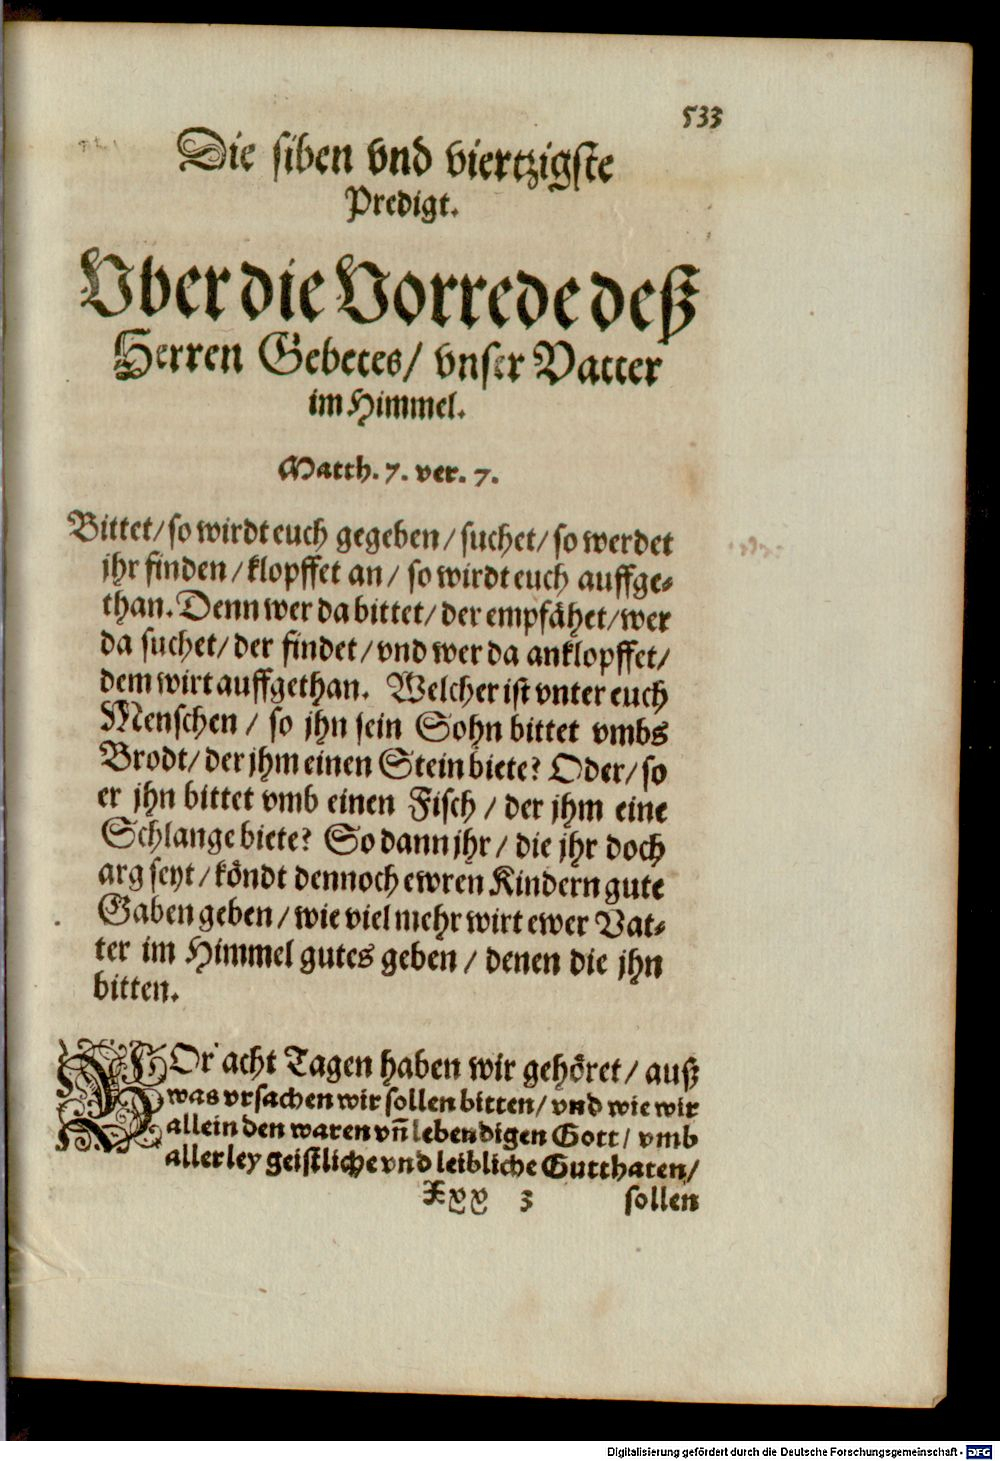 533
Die siben vnd viertzigste
Predigt.
Vber die Vorrede deß
Herren Gebetes/ vnser Vatter
im Himmel.
Matth. 7. ver. 7.
Bittet/ so wirdt euch gegeben/ suchet/ so werdet
jhr finden/ klopffet an/ so wirdt euch auffge-
than. Denn wer da bittet/ der empfähet/ wer
da suchet/ der findet/ vnd wer da anklopffet/
dem wirt auffgethan. Welcher ist vnter euch
Menschen/ so jhn sein Sohn bittet vmbs
Brodt/ der jhm einen Stein biete? Oder/ so
er jhn bittet vmb einen Fisch/ der jhm eine
Schlange biete? So dann jhr/ die jhr doch
arg seyt/ köndt dennoch ewren Kindern gute
Gaben geben/ wie viel mehr wirt ewer Vat-
ter im Himmel gutes geben/ denen die jhn
bitten.
VOr acht Tagen haben wir gehöret/ auß
was vrsachen wir sollen bitten/ vnd wie wir
allein den waren vñ lebendigen Gott/ vmb
allerley geistliche vnd leibliche Gutthaten/
Xxx 3 sollen
Digitalisierung gefördert durch die Deutsche Forschungsgemeinschaft - DFG